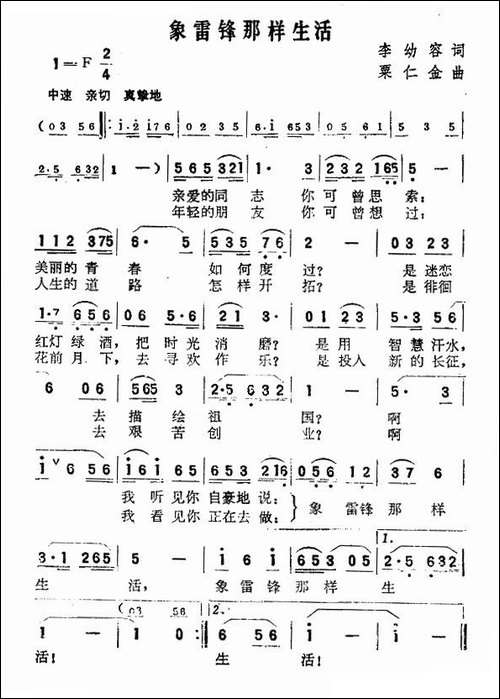 象雷锋那样生活
李幼容词
1=F 2/4
栗仁金曲
中速 亲切 真挚地
(03 56 ‖: 1·2 176 | 02 35 | 6·1 653 | 056 561 | 5 35 |
2·5 632 | 1 —) | 565 321 | 1· 3 | 232 165 | 5 — |
亲爱的同志 你可曾思索;
年轻的朋友 你可曾想过;
112 375 | 6· 5 | 535 76 | 2 — | 03 23 |
美丽的青春 如何度过? 是迷恋
人生的道路 怎样开拓? 是徘徊
1·7 656 | 06 5·6 | 13 21 | 6 — | 02 23 | 5·3 56 |
红灯绿酒,把时光消磨? 是用智慧汗水,
花前月下,去寻欢作乐? 是投入新的长征,
6 06 | 565 3 | 2·5 632 | 1 — | 5· 3 |
去描绘祖国? 啊
去艰苦创业? 啊
i ∨ 6 56 | i6i 65 | 653 216 | 056 12 | 37 6 |
我听见你自豪地说: 象雷锋那样
我看见你正在去做:
1.
3·1 265 | 5 — | i 6i | 653 05 | 2·5 632 |
生活, 象雷锋那样生
(03 56 2.
1 — | 1 0 :‖ 6 56 | i — | i — ‖
活! 生活!